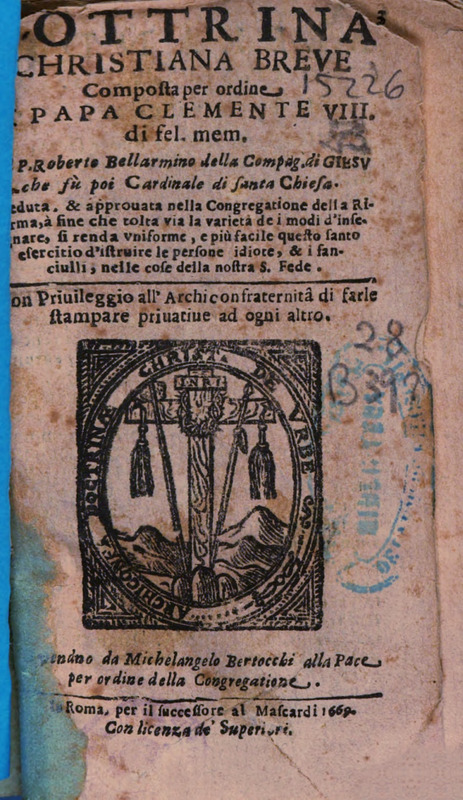 OTTRINA
CHRISTIANA BREVE
Compoſta per ordine 15226
PAPA CLEMENTE VIII.
di fel. mem.
P. Roberto Bellarmino della Compag. di GIESV
che fù poi Cardinale di ſanta Chieſa.
eduta, & approuata nella Congregatione della RI-
rma, à fine che tolta via la varietà de i modi d'inſe-
gnare, ſi renda vniforme, e più facile queſto ſanto
eſercitio d'iſtruire le perſone idiote, & i fan-
ciulli, nelle coſe della noſtra S. Fede.
on Priuileggio all' Archiconfraternità di farle
ſtampare priuatiue ad ogni altro.
28
B
INRI
DOCTRINÆ CHRIST. DE VRBE
endno da Michelangelo Bertocchi alla Pace
per ordine della Congregatione.
Roma, per il ſucceſſore al Maſcardi 1669.
Con licenza de' Superiori.